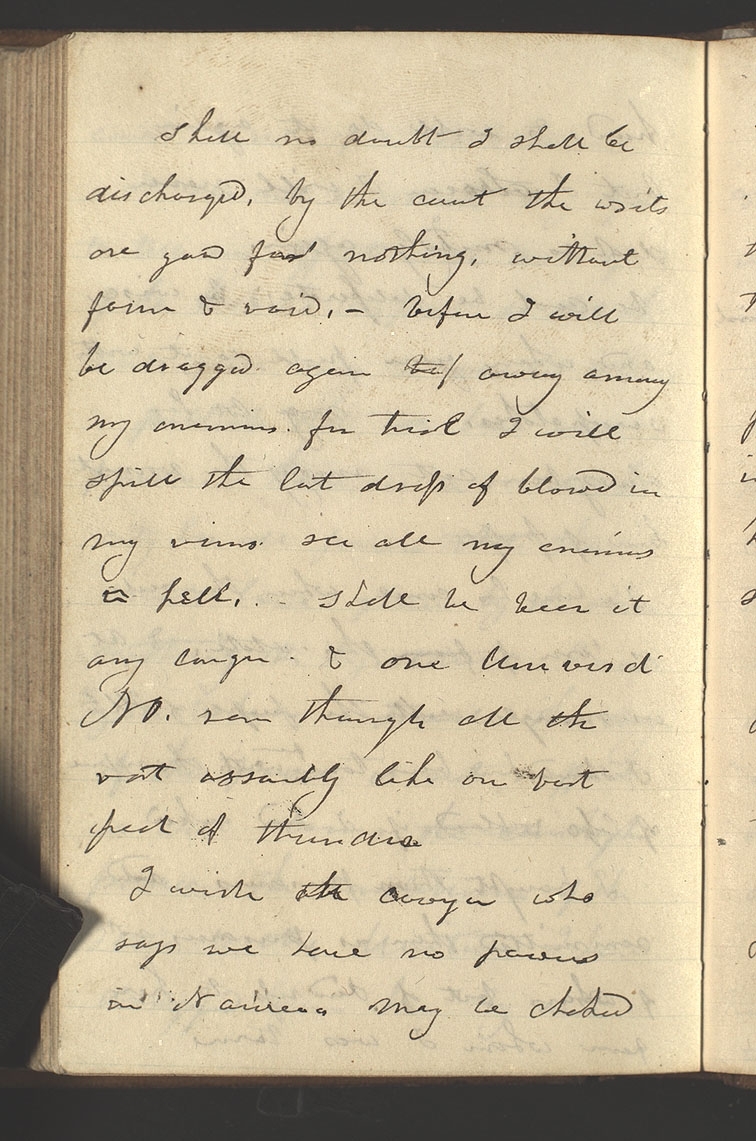 shall no doubt I shall be
discharged, by the court the writs
are good for nothing, without
form & void, – before I will
be dragged again away among
my enemies for trial I will
spill the last drop of blood in
my veins. see all my enemies
in hell, – Shall we bear it
any longer. & one Universal
NO. ran through all the
vast assembly like on vast
peal of thunder
I wish the lawyer who
says we have no powers
in Nauvoo may be choked